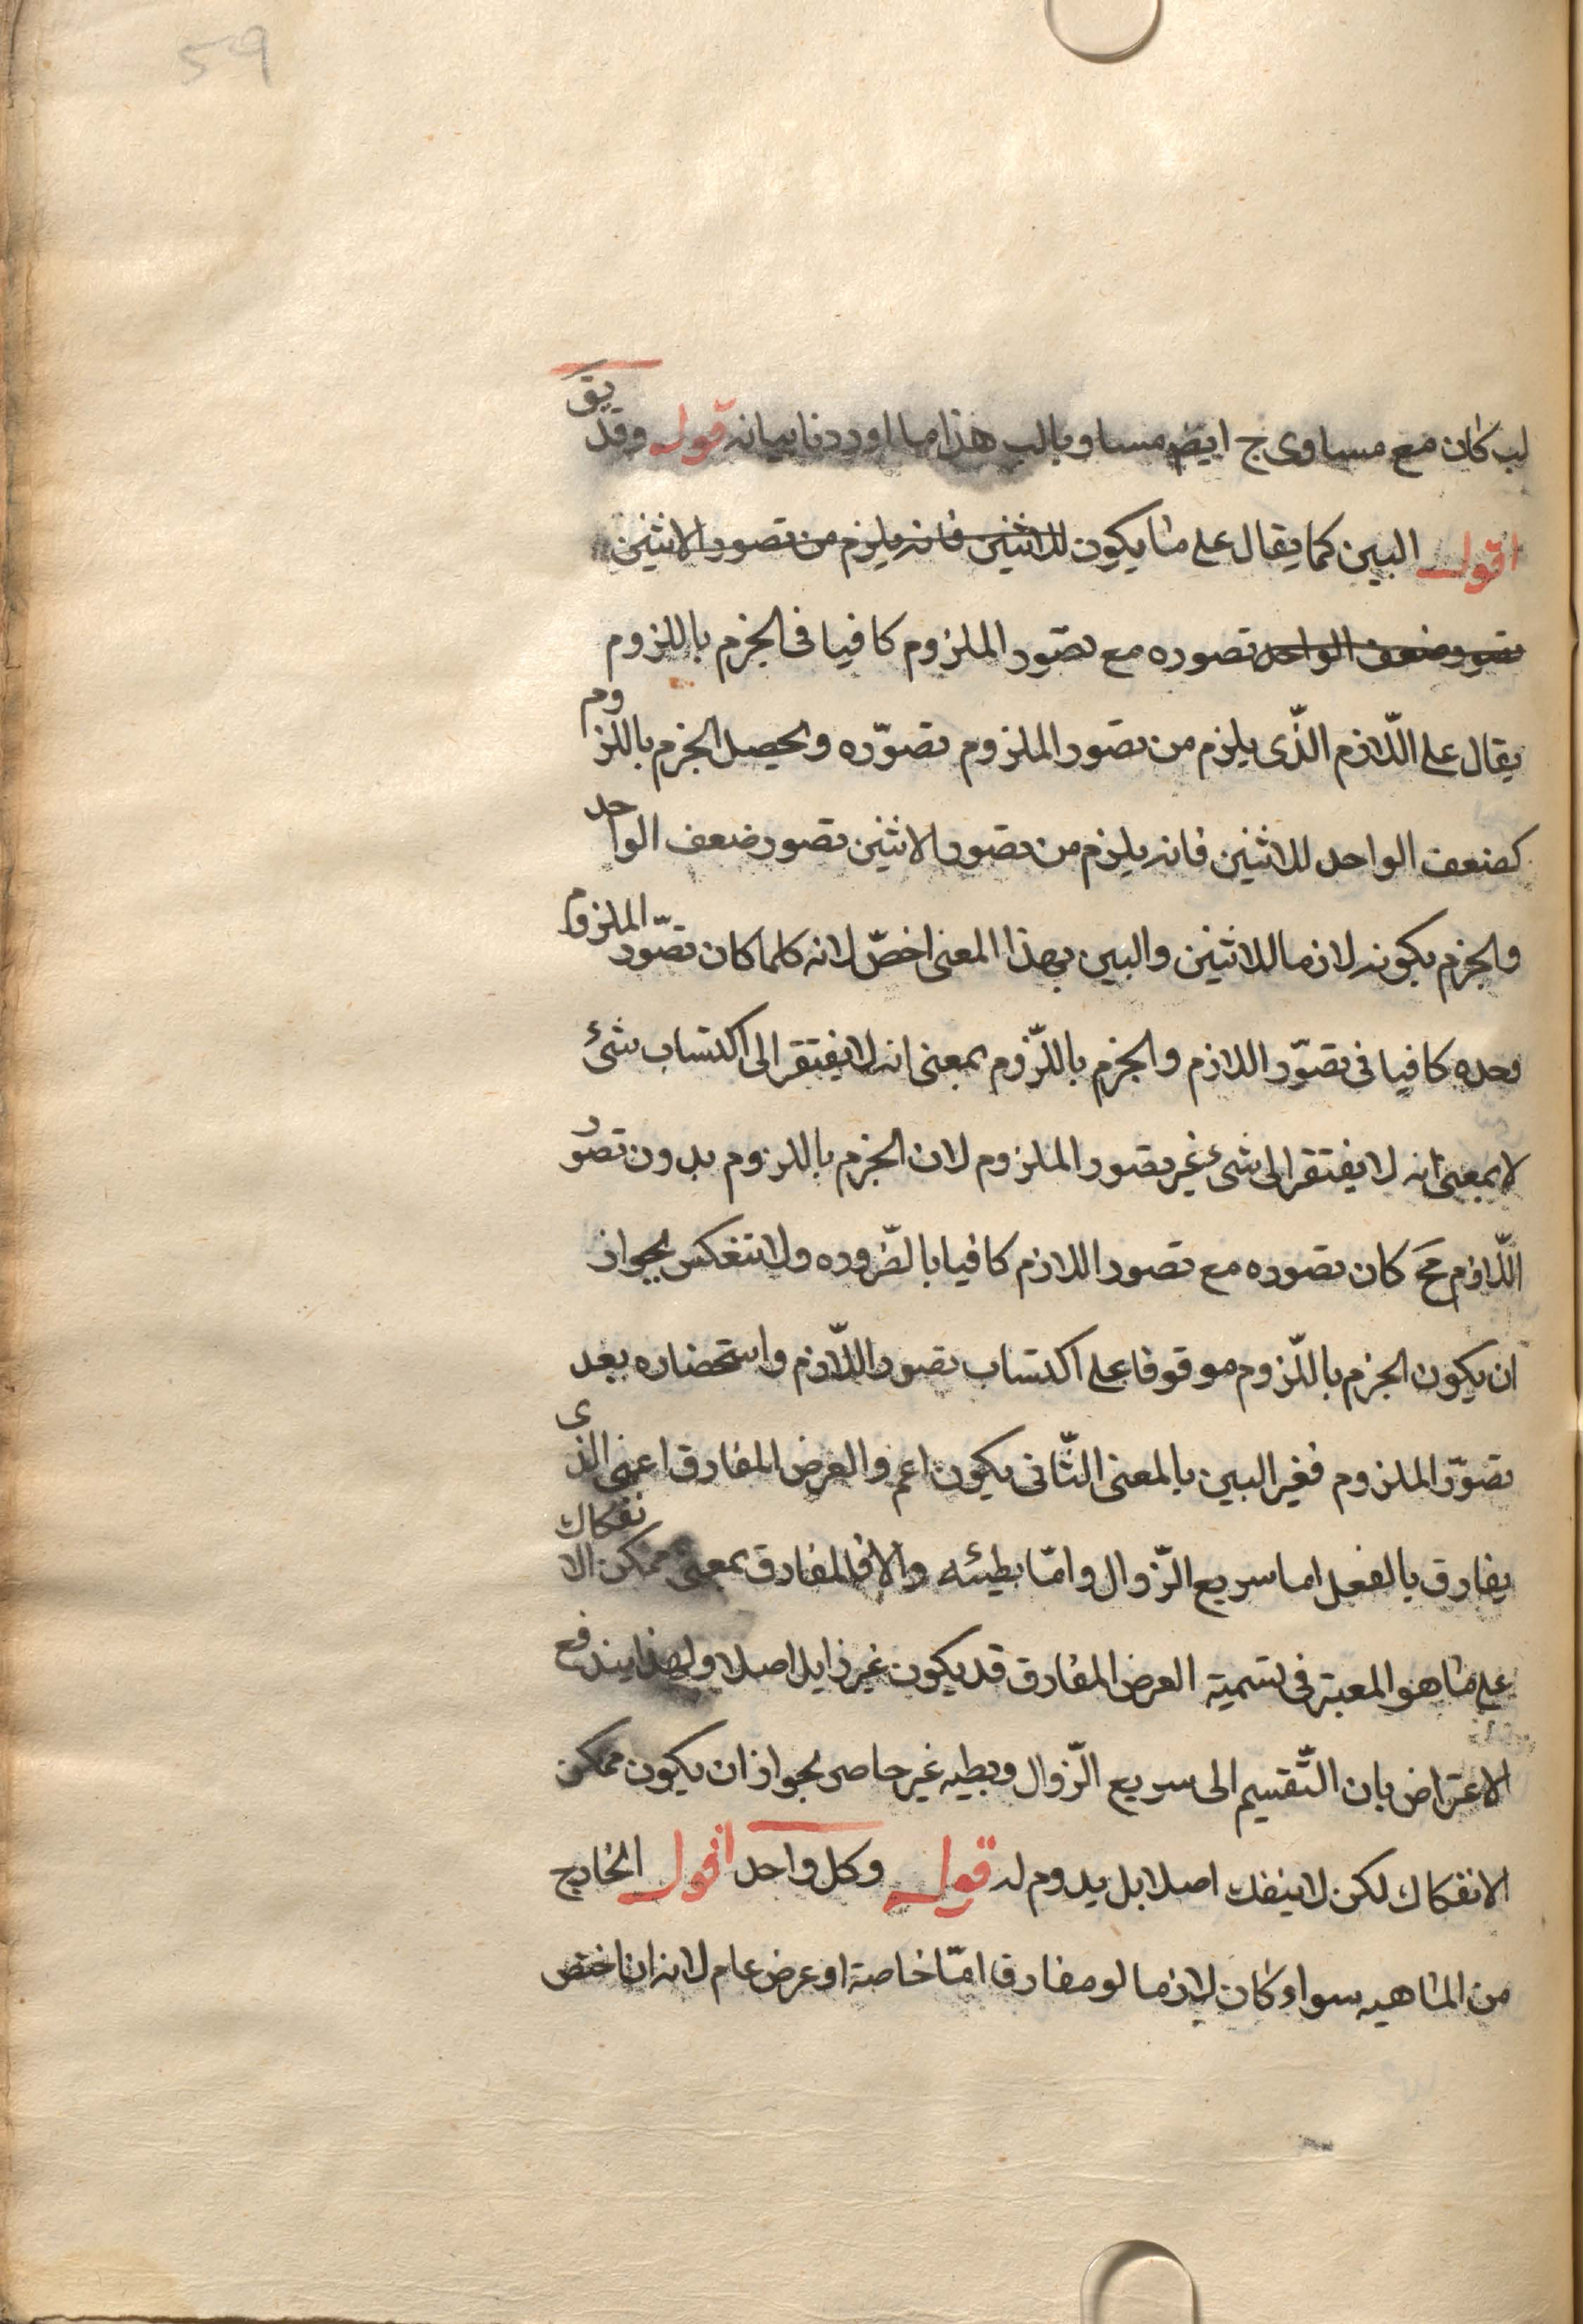 59
لب كان مع مساوى ج ايض مساو يالب هذا ما اوردنا بيانه قوله وقد يق
اقول البين كما يقال على ما يكون للاثنين فانه يلزم من تصور الاثنين
تصور ضعف الواحد تصوره مع تصور الملزوم كافيا فى الجزم باللزوم
يقال على اللّازم الّذى يلزم من تصور الملزوم تصوّره ويحصل الجزم باللزوم
كضعف الواحد للاثنين فانه يلزم من تصور الاثنين تصور ضعف الواحد
والجزم بكونه لازما للاثنين والبين بهذا المعنى اخصّ لانه كلما كان تصّور الملزوم
وحده كافيا فى تصوّر اللازم والجزم باللّزوم بمعنى انه لا يفتقر الى اكتساب شئ
لا بمعنى انه لا يفتقر الى شئ غير تصور الملزوم لان الجزم باللزوم بدون تصور
اللّازم مح كان تصوره مع تصور اللازم كافيا بالضّروره ولا تنعكس بجواز
ان يكون الجزم باللّزوم موقوفا على اكتساب تصور اللّازم واستحضاره بعد
تصوّر الملزوم فغير البين بالمعنى الثّانى يكون اعم والعرض المفارق اعنى الذى
يفارق بالفعل اما سريع الزّوال وامّا بطيئه والا فالمفارق بمعنى ممكن الانفكاك
على ما هو المعبتر فى تسمية العرض المفارق قد يكون غير زايل اصلا ولهذا يندفع
الاعتراض بان التّقسيم الى سريع الزّوال وبطيه غير حاصر بجواز ان يكون ممكن
الانفكاك لكن لا ينفك اصلا بل يدوم له قوله وكل واحد اقول الخارج
من الماهيه سواء كان لازما لو مفارقا امّا خاصة او عرض عام لانه ان اختص